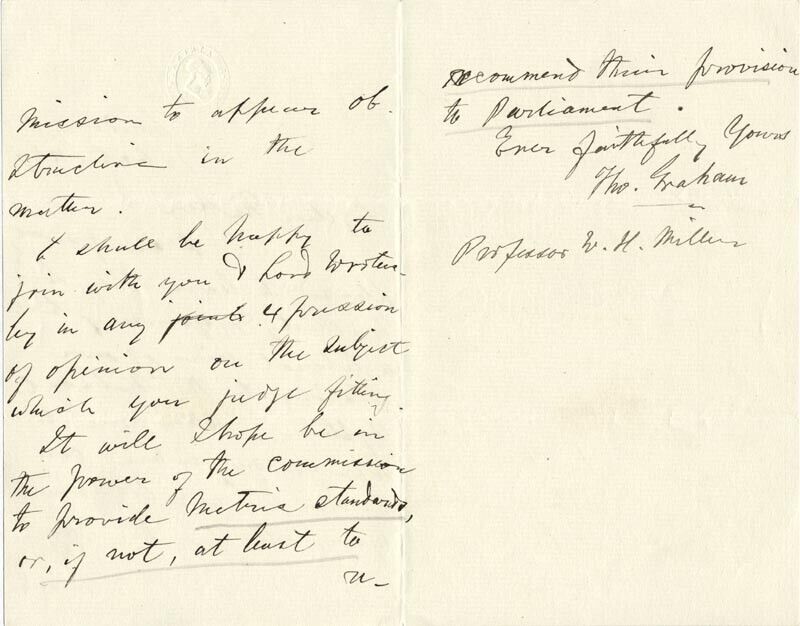 mission to appear ob-
structive in the
matter.
I shall be happy to
join with you & Lord Wrottes-
ley in any joint expression
of opinion on the subject
which you judge fitting.
It will I hope be in
the power of the commission
to provide metric standards,
or, if not, at least to
re-
recommend their provision
to Parliament.
Ever faithfully Yours
Tho. Graham
Professor W. H. Miller